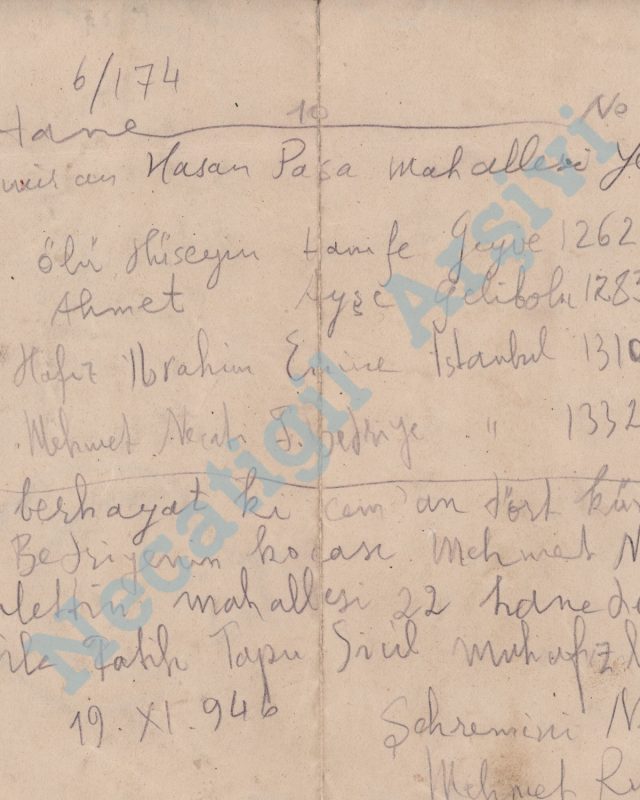 6/174
Hane 10 No
Hasan Paşa mahallesi
Ölü Hüseyin Hanife Geyve 1262
Ahmet Ayşe Gelibolu 1283
Hafız İbrahim Emine İstanbul 1310
Mehmet Necati F. Bedriye " 1332
berhayat ki cem'an dört
Bedriyenin kocası Mehmet N
mahallesi 22 hanede
Fatih Tapu Sicil muhafızl
19.XI.946 Şehremini N
Mehmet
Necatigil Arşivi